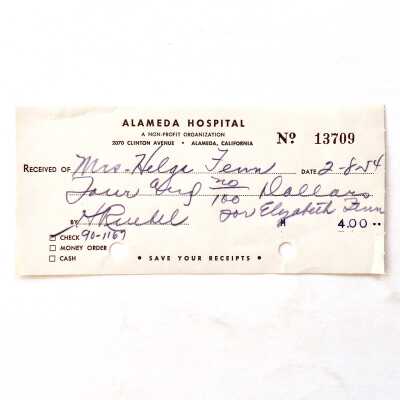 ALAMEDA HOSPITAL
A NON-PROFIT ORGANIZATION
2070 CLINTON AVENUE • ALAMEDA, CALIFORNIA
Nº 13709
RECEIVED OF Mrs. Helga Fenn DATE 2-8-54
Four and no/100 Dollars
for Elizabeth Fenn
BY
4.00
CHECK 90-1167
MONEY ORDER
CASH • SAVE YOUR RECEIPTS •